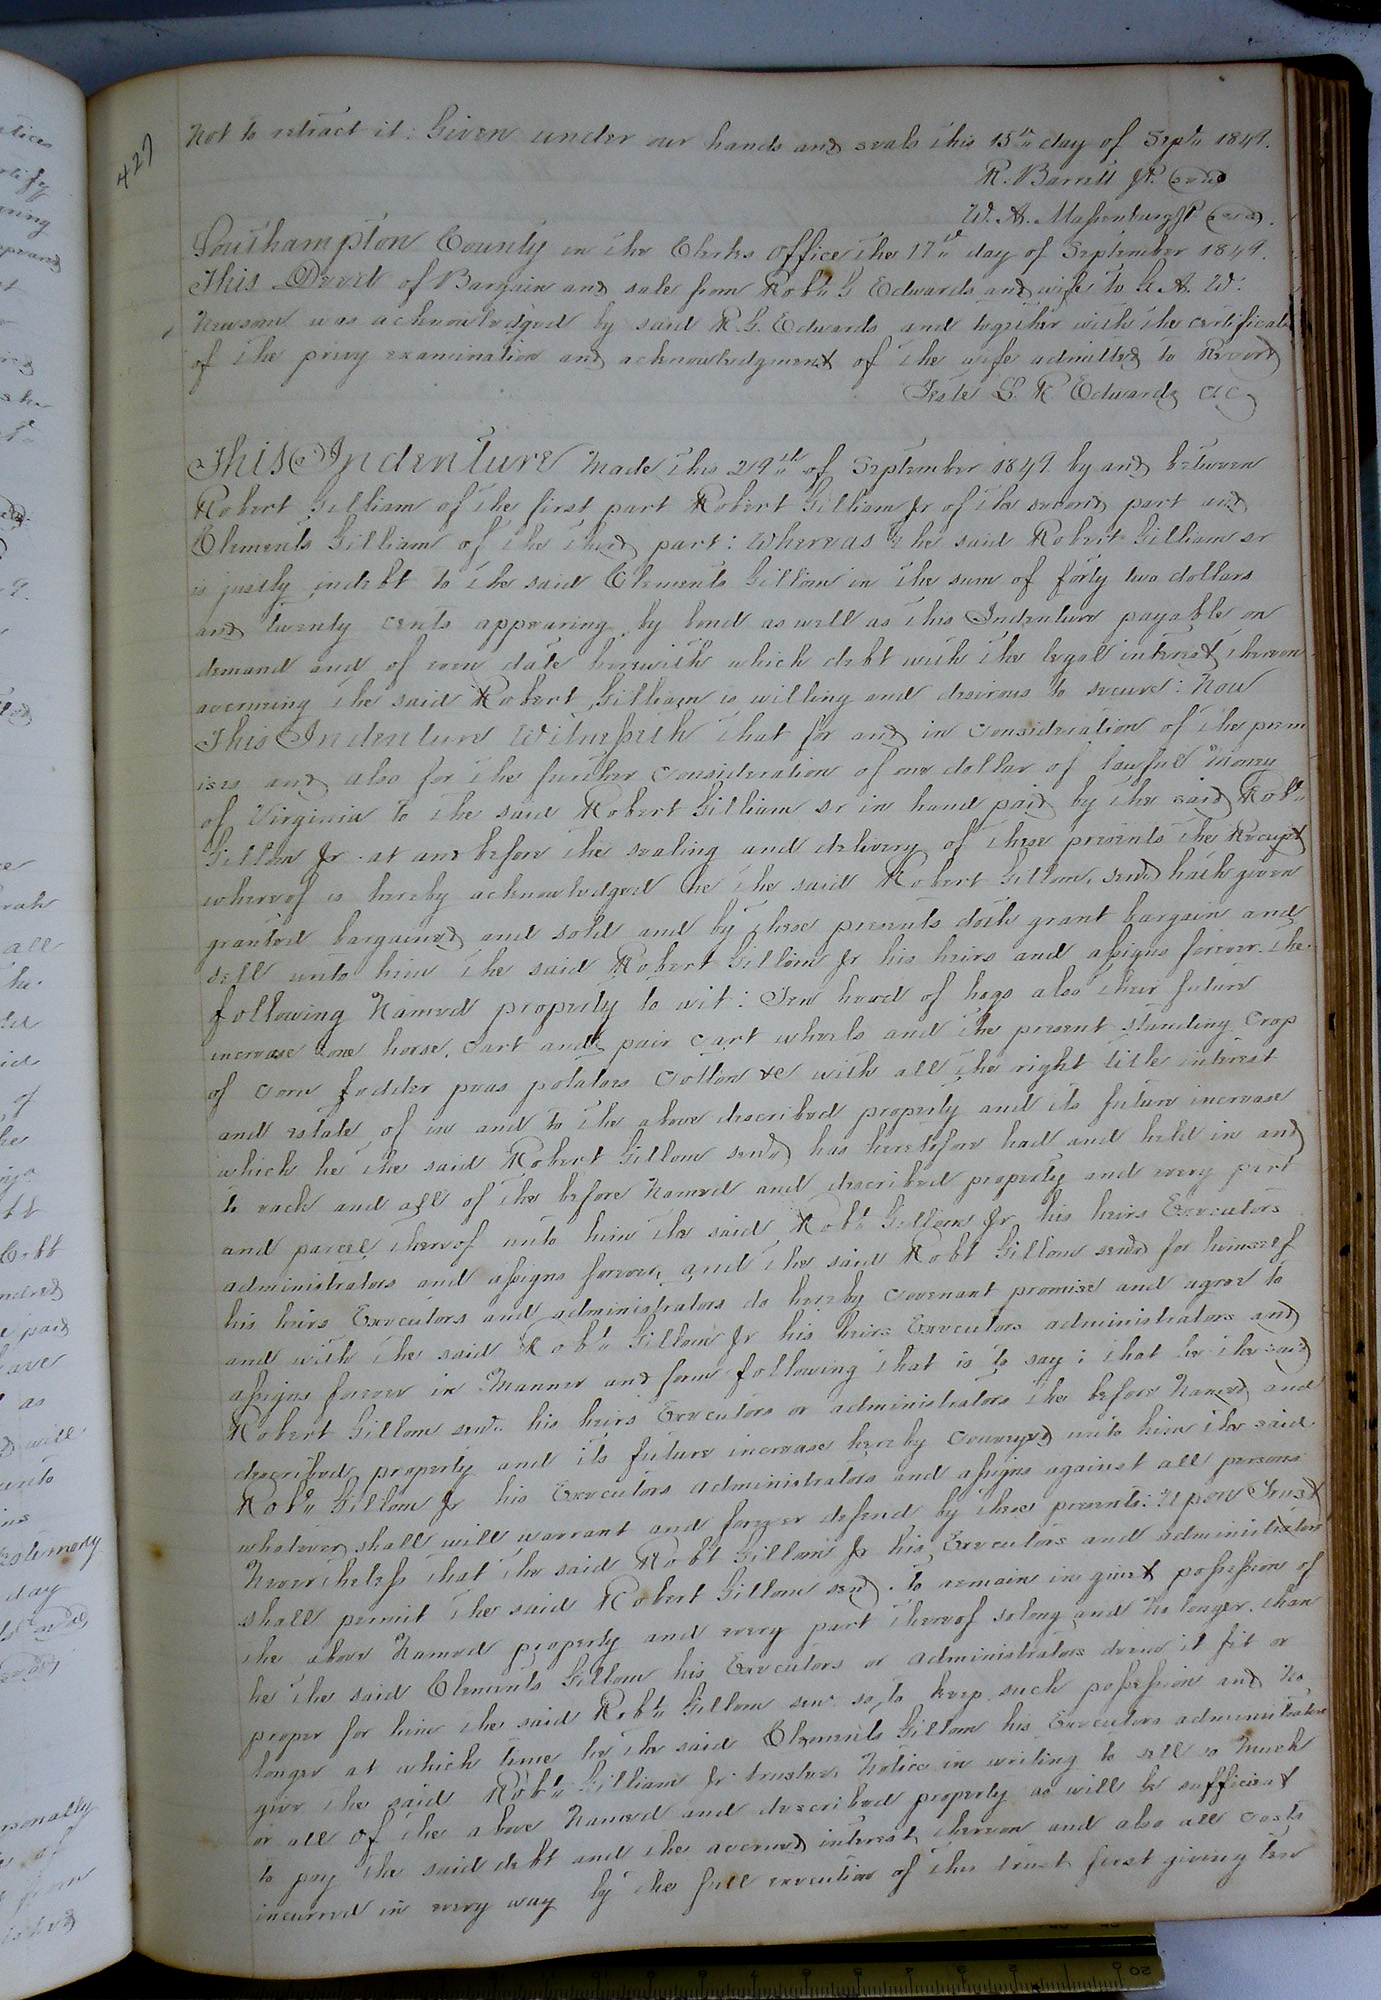 427
Not to retract it: Given under our hands and seals this 15th day of Sept 1849.
R. Barrett JP. (seal)
W. A. Massenburg JP (seal).
Southampton County in the Clerks office the 17th day of September 1849.
This Deed of Bargain and sale from Robt G Edwards and wife to G. A. W.
Newsom was acknowledged by said R. G. Edwards and together with the certificate
of the privy examination and acknowledgment of the wife admitted to Record
Teste L. R. Edwards CC
This Indenture Made this 29th of September 1849 by and between
Robert Gilliam of the first part Robert Gilliam Jr of the second part and
Clements Gilliam of the third part: Whereas the said Robert Gilliam sr
is justly indebt to the said Clements Gillom in the sum of forty two dollars
and twenty cents appearing by bond as well as this Indenture payable on
demand and of even date herewith which debt with the legal interest thereon
accruing the said Robert Gilliam is willing and desirous to secure: Now
This Indenture Witnesseth that for and in consideration of the prem
ises and also for the further consideration of one dollar of lawful Money
of Virginia to the said Robert Gilliam sr in hand paid by the said Robt
Gillom Jr. at and before the sealing and delivery of these presents the Receipt
whereof is hereby acknowledged he the said Robert Gillom, send hath given
granted bargained and sold and by these presents doth grant bargain and
sell unto him the said Robert Gillom Jr his heirs and assigns forever the
following Named property to wit: Ten head of hogs also their future
increase one horse, cart and pair cart wheels and the present standing Crop
of corn fodder peas potatoes Cotton &c with all the right title interest
and estate of in and to the above described property and its future increase
which he the said Robert Gillom send has heretofore had and held in and
to each and all of the before Named and described property and every part
and parcel thereof unto him the said Robt Gillom Jr his heirs Executors
administrators and assigns forever, and the said Robt Gillom send for himself
his heirs Executors and administrators do hereby Covenant promise and agree to
and with the said Robt Gillom Jr his heirs Executors administrators and
assigns forever in Manner and form following that is to say: that he the said
Robert Gillom send. his heirs Executors or administrators the before Named and
described property and its future increase hereby conveyed unto him the said
Robt Gillom Jr his Executors administrators and assigns against all persons
whatever shall will warrant and forever defend by these presents: Upon Trust
Nevertheless that the said Robt Gillom Jr his Executors and administrators
shall permit the said Robert Gillom send. to remain in quiet possession of
the above Named property and every part thereof so long and no longer than
he the said Clements Gillom his Executors or administrators deem it fit or
proper for him the said Robt Gillom senr so to keep such possession and No
longer at which time he the said Clements Gillom his Executors administrators
give the said Robt Gilliam Jr trustee Notice in writing to sell so Much
or all of the above Named and described property as will be sufficient
to pay the said debt and the accrued interest thereon and also all costs
incurred in every way by the full execution of this trust first giving ten